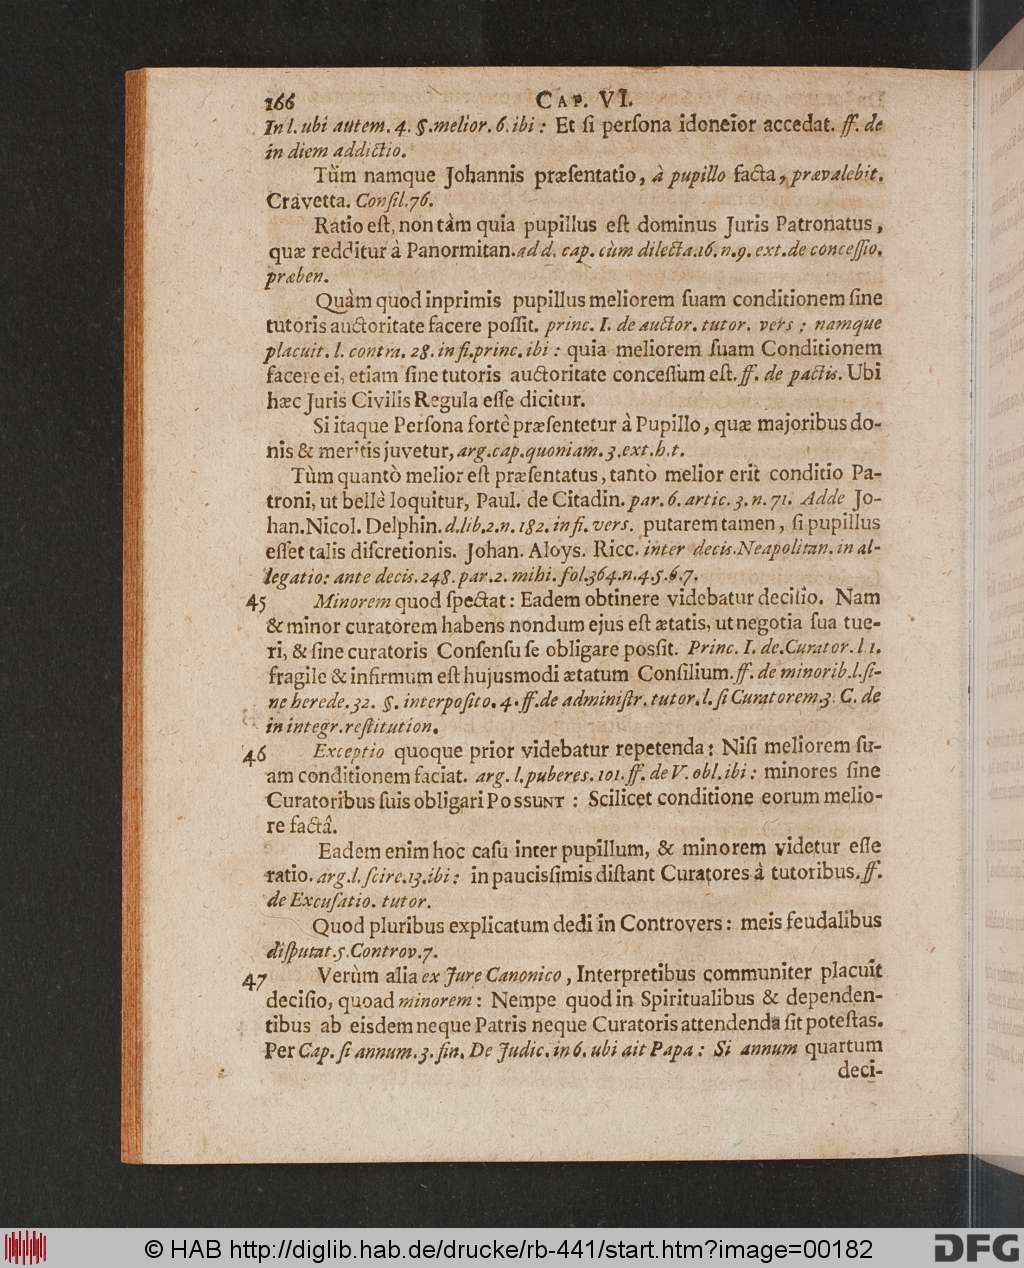 166 CAP. VI.
In l. ubi autem. 4. §. melior. 6. ibi: Et ſi perſona idoneior accedat. ff. de
in diem addictio.
Tùm namque Johannis præſentatio, à pupillo facta, prævalebit.
Cravetta. Conſil. 76.
Ratio eſt, non tàm quia pupillus eſt dominus Juris Patronatus,
quæ redditur à Panormitan. ad d. cap. cùm dilecta. 16. n. 9. ext. de conceſſio.
præben.
Quàm quod inprimis pupillus meliorem ſuam conditionem ſine
tutoris auctoritate facere poſſit. princ. I. de auctor. tutor. vers; namque
placuit. l. contra. 28. in fi. princ. ibi: quia meliorem ſuam Conditionem
facere ei, etiam ſine tutoris auctoritate conceſſum eſt. ff. de pactis. Ubi
hæc Juris Civilis Regula eſſe dicitur.
Si itaque Perſona fortè præſentetur à Pupillo, quæ majoribus do-
nis & meritis juvetur, arg. cap. quoniam. 3. ext. h. t.
Tùm quantò melior eſt præſentatus, tantò melior erit conditio Pa-
troni, ut bellè loquitur, Paul. de Citadin. par. 6. artic. 3. n. 71. Adde Jo-
han. Nicol. Delphin. d. lib. 2. n. 182. in fi. vers. putarem tamen, ſi pupillus
eſſet talis diſcretionis. Johan. Aloys. Ricc. inter decis. Neapolitan. in al-
legatio: ante decis. 248. par. 2. mihi. fol. 364. n. 4. 5. 6. 7.
45 Minorem quod ſpectat: Eadem obtinere videbatur deciſio. Nam
& minor curatorem habens nondum ejus eſt ætatis, ut negotia ſua tue-
ri, & ſine curatoris Conſenſu ſe obligare posſit. Princ. I. de. Curator. l. 1.
fragile & infirmum eſt hujusmodi ætatum Conſilium. ff. de minorib. l. ſi-
ne herede. 32. §. interpoſito. 4. ff. de adminiſtr. tutor. l. ſi Curatorem. 3. C. de
in integr. reſtitution.
46 Exceptio quoque prior videbatur repetenda: Niſi meliorem ſu-
am conditionem faciat. arg. l. puberes. 101. ff. de V. obl. ibi: minores ſine
Curatoribus ſuis obligari POSSUNT: Scilicet conditione eorum melio-
re factâ.
Eadem enim hoc caſu inter pupillum, & minorem videtur eſſe
ratio. arg. l. ſcire. 13. ibi: in paucisſimis diſtant Curatores à tutoribus. ff.
de Excuſatio. tutor.
Quod pluribus explicatum dedi in Controvers: meis feudalibus
diſputat. 5. Controv. 7.
47 Verùm alia ex Jure Canonico, Interpretibus communiter placuit
deciſio, quoad minorem: Nempe quod in Spiritualibus & dependen-
tibus ab eisdem neque Patris neque Curatoris attendenda ſit poteſtas.
Per Cap. ſi annum. 3. fin. De Judic. in 6. ubi ait Papa: Si annum quartum
deci-
© HAB http://diglib.hab.de/drucke/rb-441/start.htm?image=00182
DFG